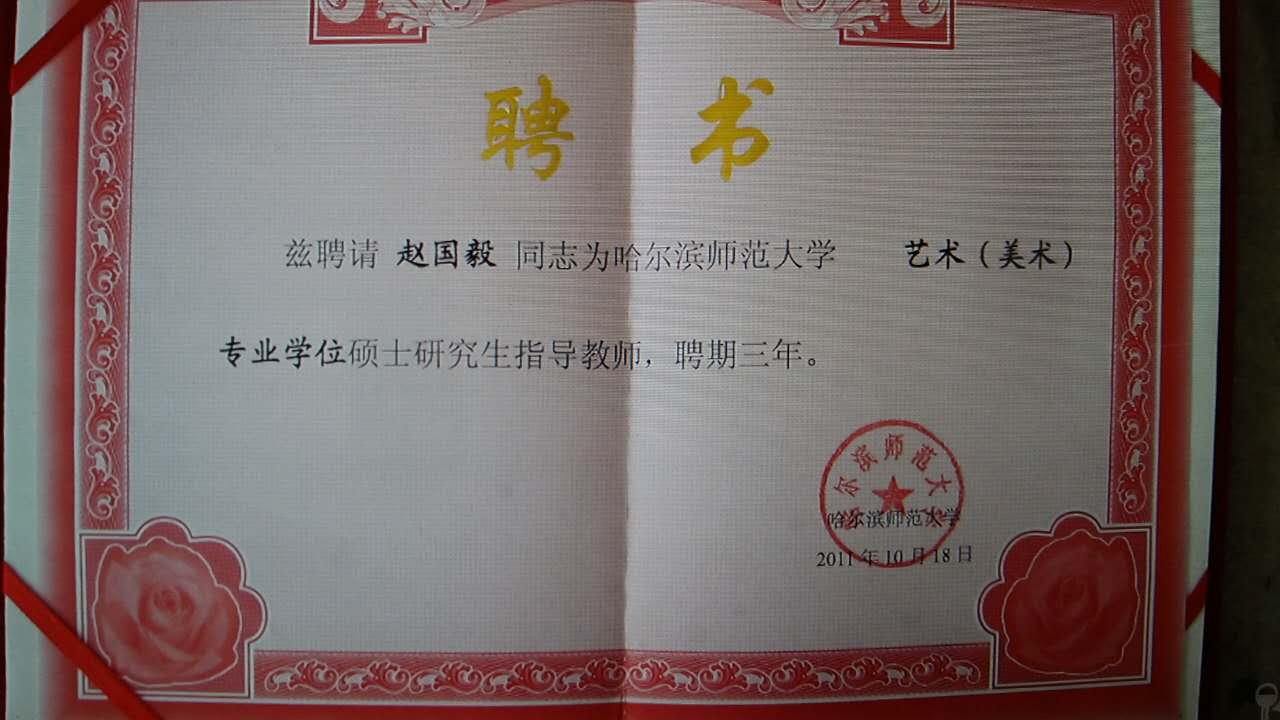 聘 书
兹聘请 赵国毅 同志为哈尔滨师范大学 艺术（美术）
专业学位硕士研究生指导教师，聘期三年。
尔滨师范大
哈尔滨师范大学
2011年10月18日